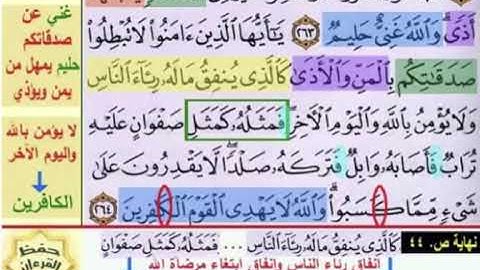 أَذًى وَاللَّهُ غَنِيٌّ حَلِيمٌ ٢٦٣ يَا أَيُّهَا الَّذِينَ ءَامَنُوا لَا تُبْطِلُوا
صَدَقَاتِكُم بِالْمَنِّ وَالْأَذَىٰ كَالَّذِي يُنفِقُ مَالَهُ رِئَاءَ النَّاسِ
وَلَا يُؤْمِنُ بِاللَّهِ وَالْيَوْمِ الْآخِرِ فَمَثَلُهُ كَمَثَلِ صَفْوَانٍ عَلَيْهِ
تُرَابٌ فَأَصَابَهُ وَابِلٌ فَتَرَكَهُ صَلْدًا لَّا يَقْدِرُونَ عَلَىٰ
شَيْءٍ مِّمَّا كَسَبُوا وَاللَّهُ لَا يَهْدِي الْقَوْمَ الْكَافِرِينَ ٢٦٤
غني عن
صدقاتكم
حليم يمهل من
يمن ويؤذي
لا يؤمن بالله
واليوم الآخر
الكافرين
نهاية ص. ٤٤
كَالَّذِي يُنفِقُ مَالَهُ رِئَاءَ النَّاسِ ... فَمَثَلُهُ كَمَثَلِ صَفْوَانٍ
إنفاق رياء الناس وإنفاق ابتغاء مرضاة الله
حفظ
القرءان